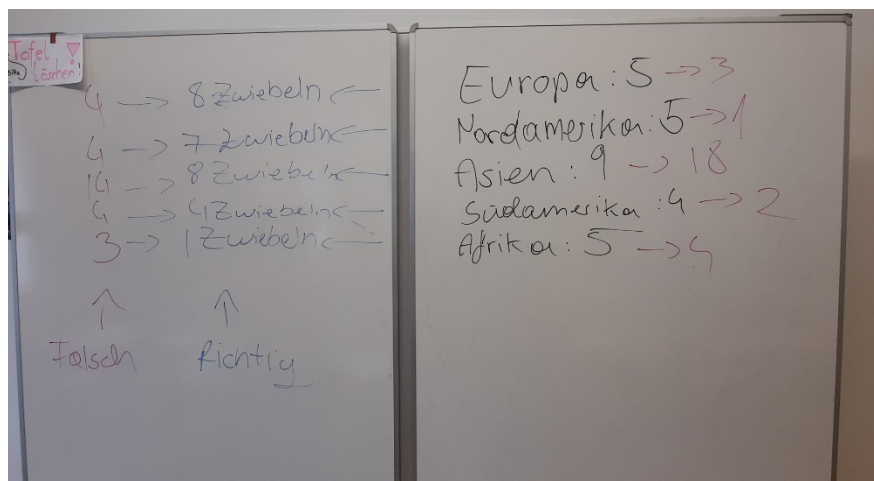 Tafel
löschen!
4 → 8 Zwiebeln ←
4 → 7 Zwiebeln ←
14 → 8 Zwiebeln ←
4 → 4 Zwiebeln ←
3 → 1 Zwiebeln ←
Falsch Richtig
Europa: 5 → 3
Nordamerika: 5 → 1
Asien: 9 → 18
Südamerika: 4 → 2
Afrika: 5 → 4